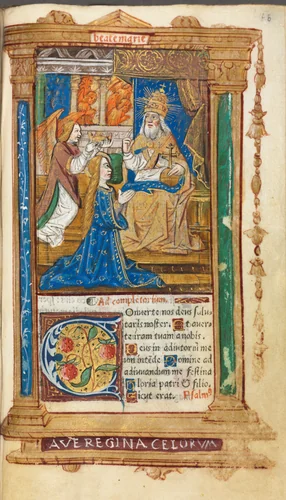 beate marie
Ad completorium.
Onverte nos deus salu
taris noster. Et averte
iram tuam a nobis.
Deus in adiutoriũ me
um intẽde Domine ad
adiuvandum me festina
Gloria patri & filio.
Sicut erat. Psalm⁹
AVE REGINA CELORVM